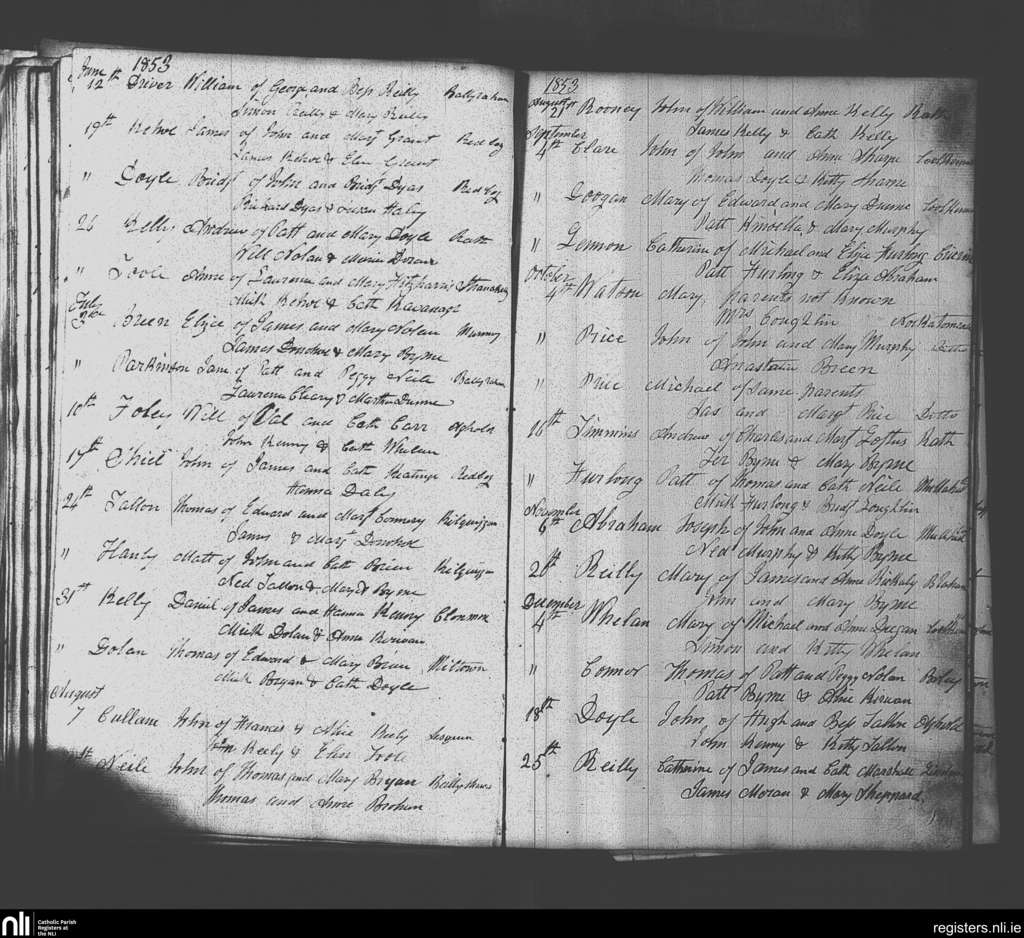 1853
June
12th Driver William of George and Bess Reilly Ballyraham
Simon Reilly & Mary Reilly
19th Kehoe James of John and Margt Grant Redbog
James Kehoe & Ellen Grant
" Coyle Bridgt of John and Bridgt Dyas Redbog
Richard Dyas & Susan Haley
26 Kelly Andrew of Patt and Mary Doyle Rath
Will Nolan & Maria
" Toole Anne of Laurence and Mary Fitzharris
Mick Kehoe & Cath Kavanagh
July
Breen Eliza of James and Mary Nolan
James Donohoe & Mary Byrne
" Parkinson Jane of Patt and Peggy Neile Ballyraham
Laurence Cleary & Martha Dunne
10th Foley Will of Val and Cath Carr Aghold
John Kenny & Cath Whelan
17th John of James and Cath Keatinge Redbog
Hanna Daly
24th Tallon Thomas of Edward and Margt Connery Kilquiggan
James & Margt Donohoe
" Hanly Matt of John and Cath Brien Kilquiggan
Ned Tallon & Mary Byrne
31st Kelly Daniel of James and Hanna Kenny Clonmore
Mick Dolan & Anne Kirwan
" Golan Thomas of Edward & Mary Brien Miltown
Mick Bryan & Cath Doyle
August
7 Cullane John of Francis & Alice Keely
Keely & Ellen Toole
Neile John of Thomas and Mary Bryan
Thomas and Anne Brohen
1853
August
21st Rooney John of William and Anne Kelly Rath
James Kelly & Cath Kelly
September
4th Clare John of John and Anne Tharpe
Thomas Doyle & Kitty
" Googan Mary of Edward and Mary Dunne
Patt Kinsella & Mary Murphy
" Lennon Catherine of Michael and Eliza Furlong
Patt Furlong & Eliza Abraham
October
4th Watson Mary, parents not known
Mrs Coughlin
" Price John of John and Mary Murphy Ditto
Anastatia Breen
" Price Michael of same parents
Jas and Margt Price Ditto
16th Timmins Andrew of Charles and Margt Loftus Rath
Ter Byrne & Mary Byrne
" Furlong Patt of Thomas and Cath Neile
Mick Furlong & Bridgt Coughlin
November
6th Abraham Joseph of John and Anne Doyle
Ned Murphy & Ruth Byrne
20th Reilly Mary of James and Anne
John and Mary Byrne
December
4th Whelan Mary of Michael and Anne Deegan
Simon and Kitty Whelan
" Connor Thomas of Patt and Peggy Nolan
Patt Byrne & Anne Kirwan
18th Doyle John, of Hugh and Bess Tallon Aghold
John Kenny & Kitty Tallon
25th Reilly Catherine of James and Cath Marshall
James Moran & Mary Sheppard
nli Catholic Parish
Registers at
the NLI
registers.nli.ie